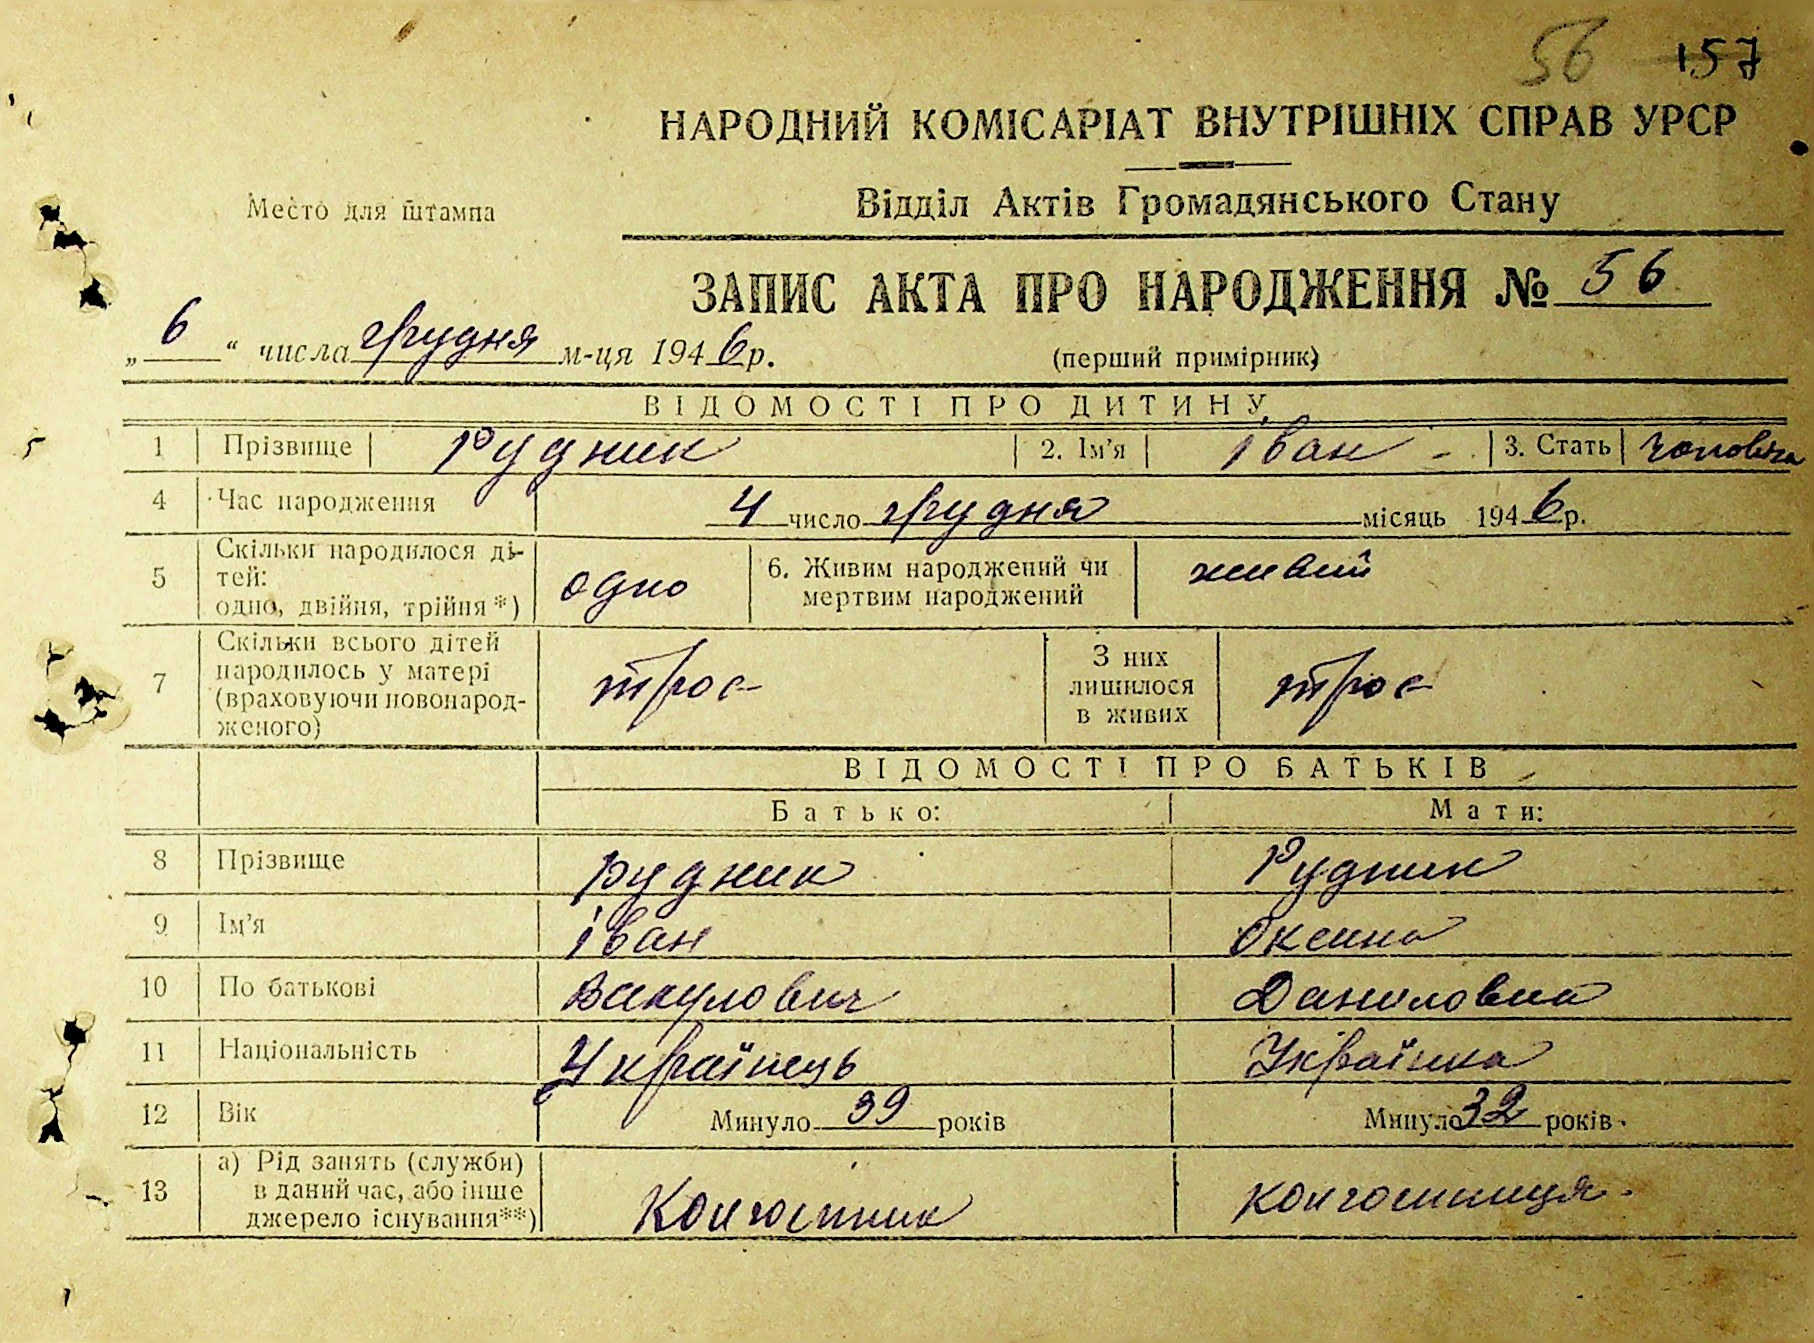 56 157
НАРОДНИЙ КОМІСАРІАТ ВНУТРІШНІХ СПРАВ УРСР
Место для штампа
Відділ Актів Громадянського Стану
ЗАПИС АКТА ПРО НАРОДЖЕННЯ № 56
„ 6 “ числа грудня м-ця 1946 р.
(перший примірник)
ВІДОМОСТІ ПРО ДИТИНУ
1 Прізвище Рудник 2. Ім'я Іван 3. Стать чоловіча
4 Час народження 4 число грудня місяць 1946 р.
5 Скільки народилося ді-
тей:
одно, двійня, трійня*) одно
6. Живим народжений чи
мертвим народжений живий
7 Скільки всього дітей
народилось у матері
(враховуючи новонарод-
женого) троє
З них
лишилося
в живих троє
ВІДОМОСТІ ПРО БАТЬКІВ
Батько: Мати:
8 Прізвище Рудник Рудник
9 Ім'я Іван Оксина
10 По батькові Вакулович Даниловна
11 Національність Українець Українка
12 Вік Минуло 39 років Минуло 32 років
13 а) Рід занять (служби)
в даний час, або інше
джерело існування**) Колгоспник колгоспниця